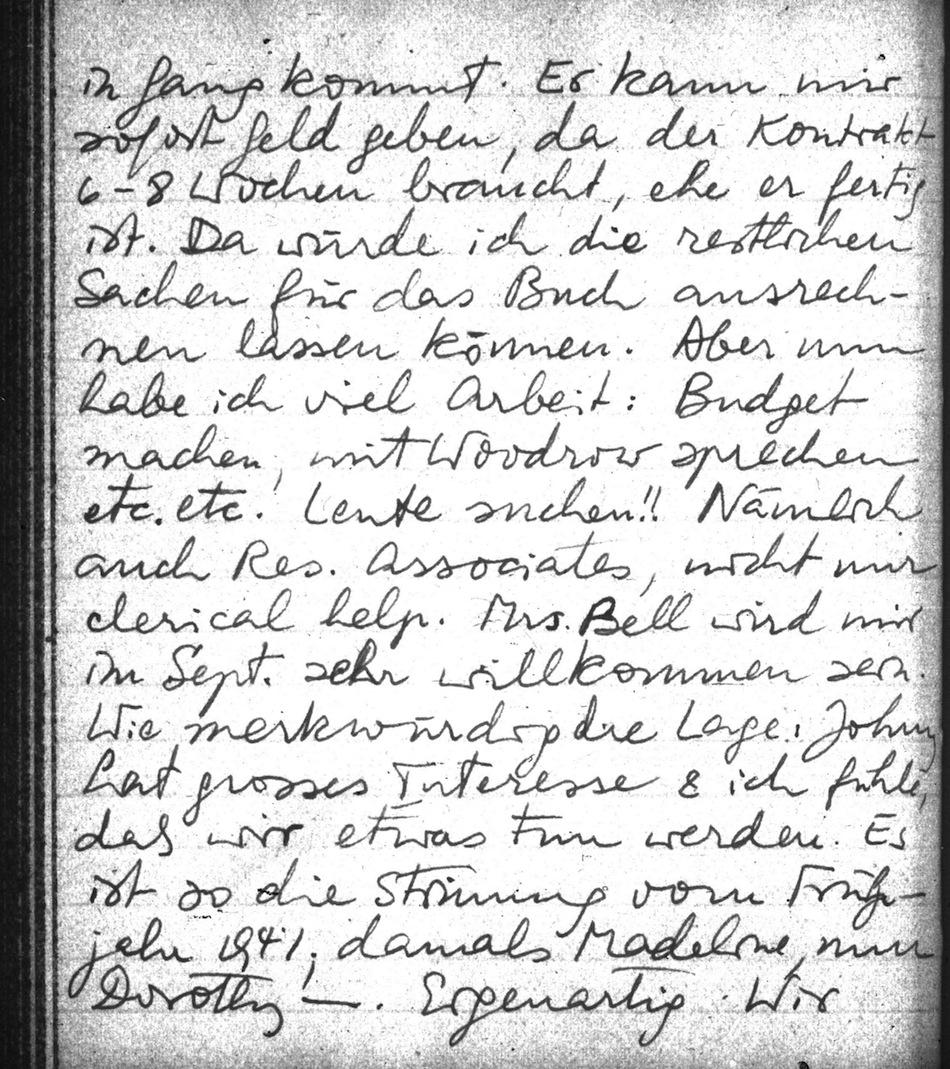 in Gang kommt. Er kann mir
sofort Geld geben, da der Kontrakt
6-8 Wochen braucht, ehe er fertig
ist. Da würde ich die restlichen
Sachen für das Buch ausrech-
nen lassen können. Aber nun
habe ich viel Arbeit: Budget
machen, mit Woodrow sprechen
etc. etc. Leute suchen!! Nämlich
auch Res. Associates, nicht nur
clerical help. Mrs. Bell wird mir
im Sept. sehr willkommen sein.
Wie merkwürdig die Lage: Johnny
hat grosses Interesse & ich fühle,
daß wir etwas tun werden. Es
ist so die Stimmung vom Früh-
jahr 1941; damals Madeline, nun
Dorothy —. Eigenartig. Wir